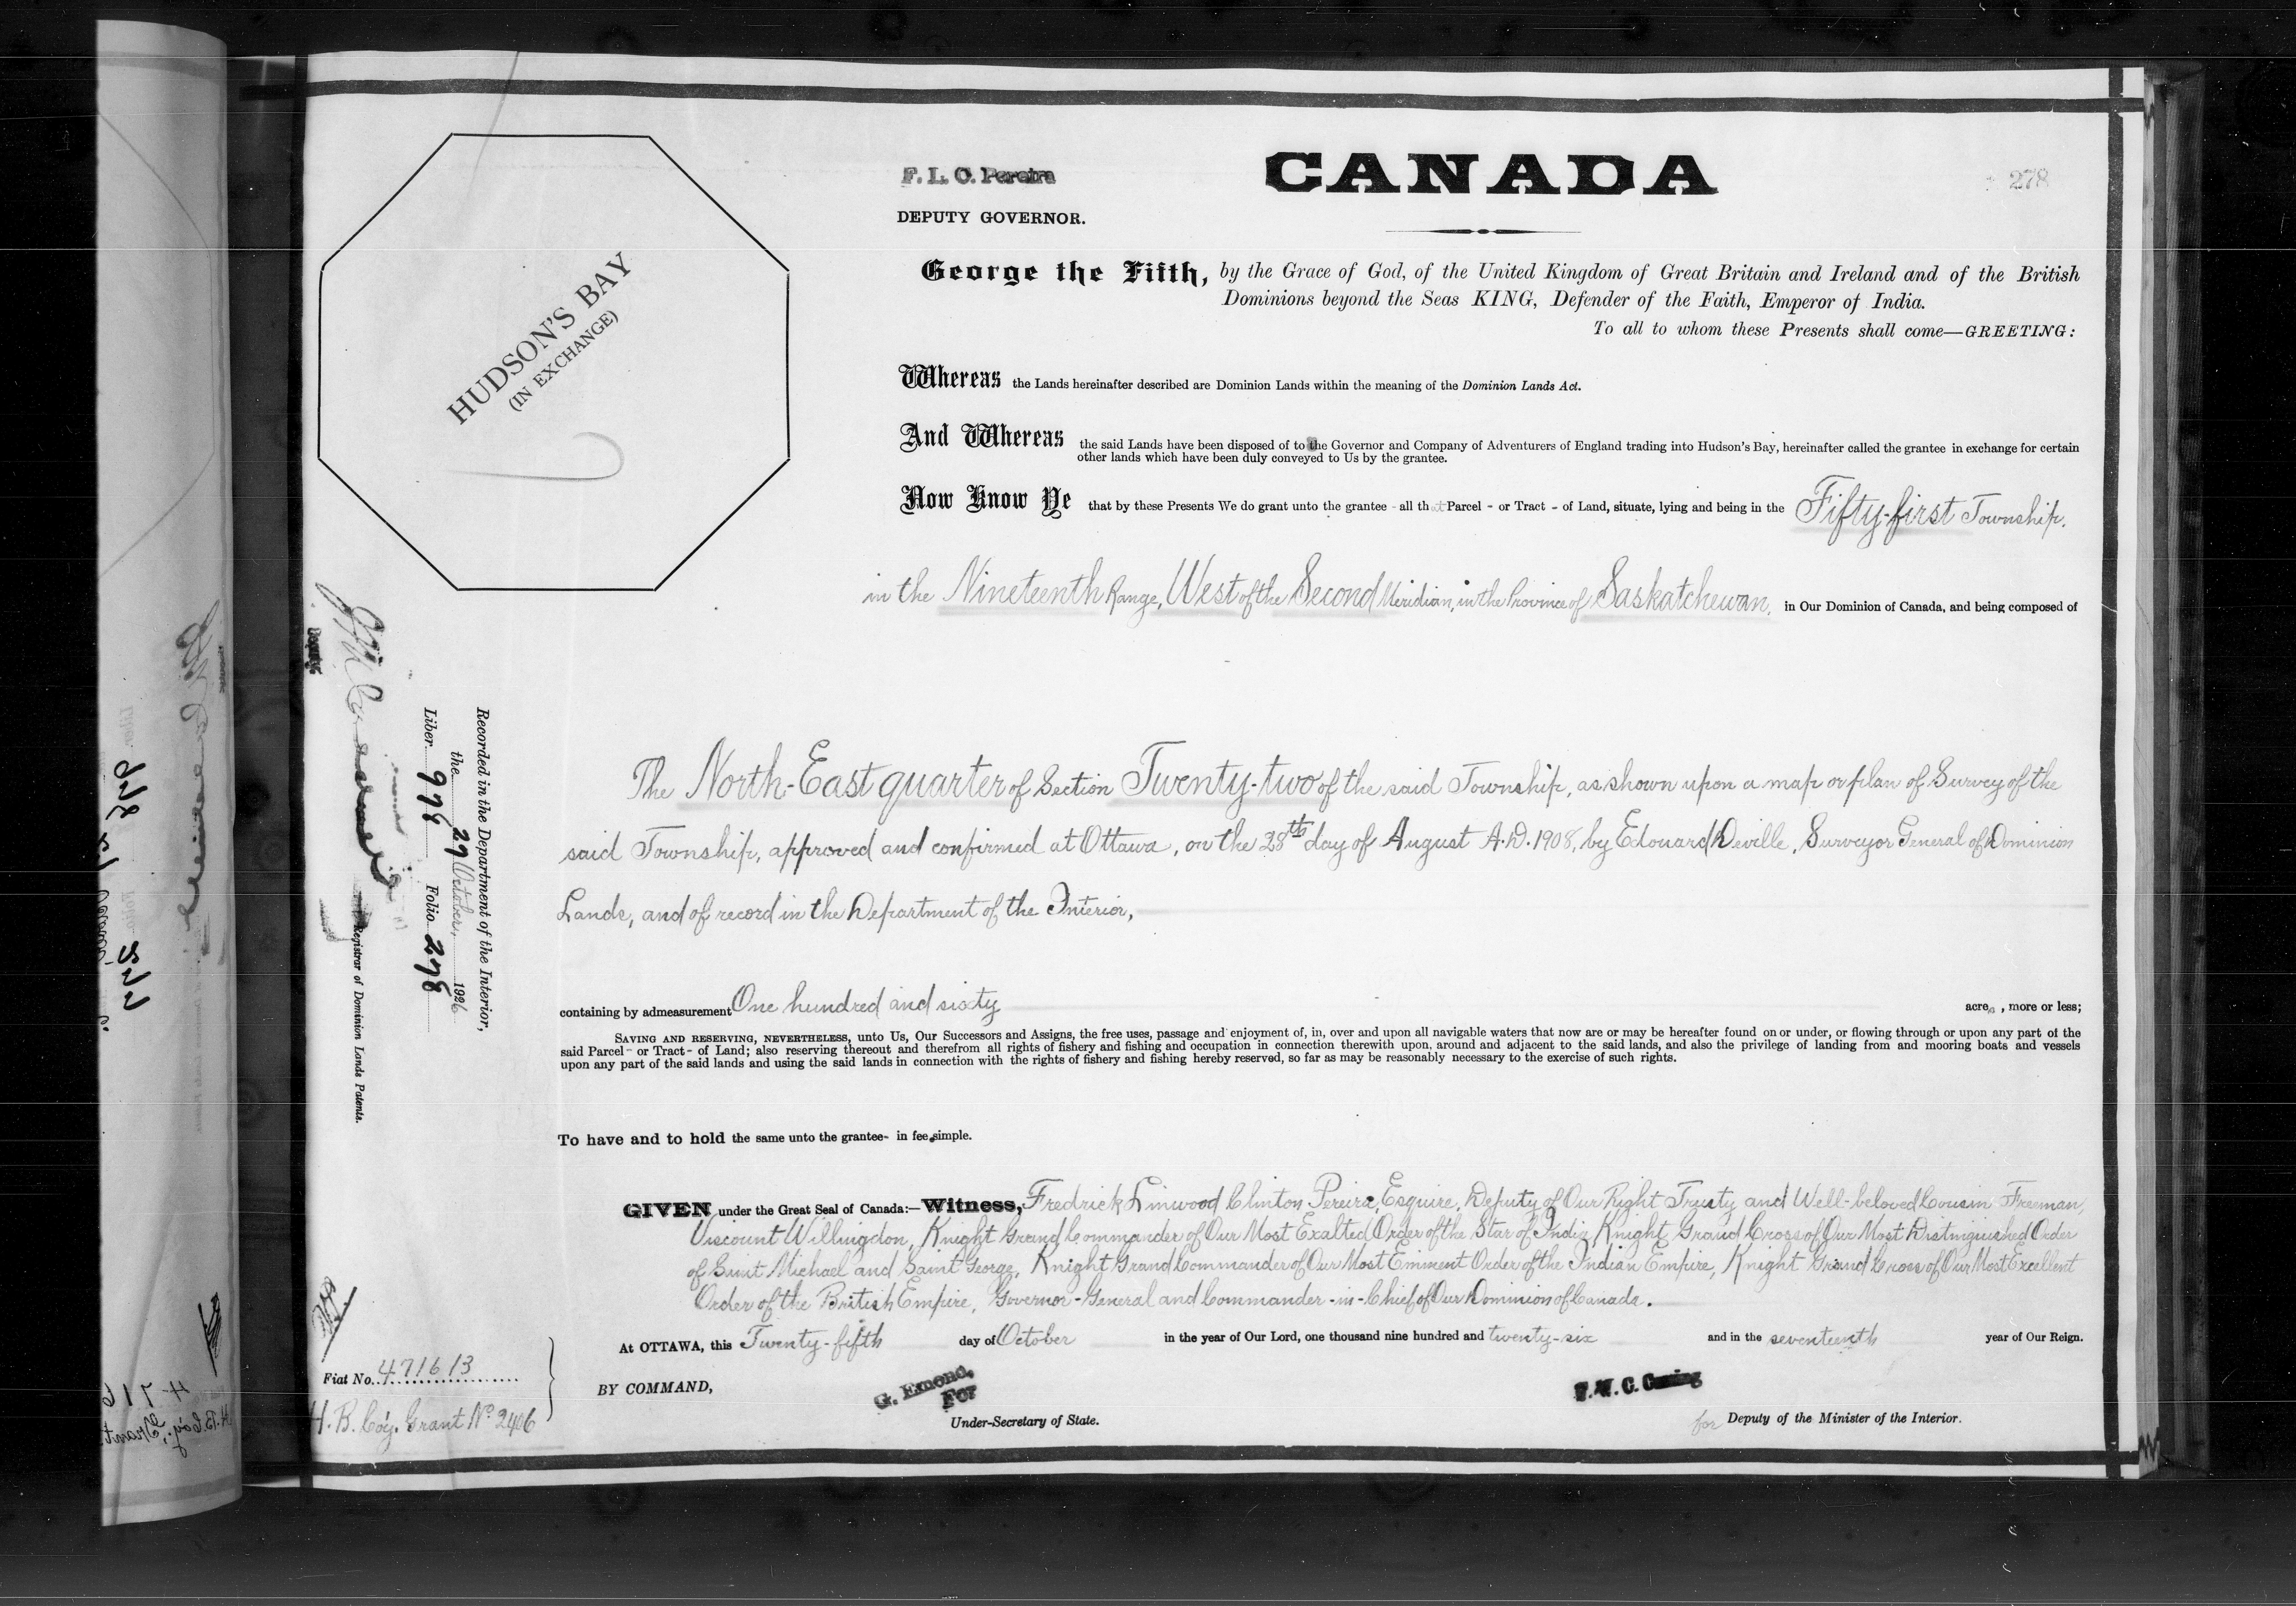 F. L. C. Pereira
DEPUTY GOVERNOR.
CANADA
278
HUDSON'S BAY
(IN EXCHANGE)
George the Fifth, by the Grace of God, of the United Kingdom of Great Britain and Ireland and of the British
Dominions beyond the Seas KING, Defender of the Faith, Emperor of India.
To all to whom these Presents shall come—GREETING:
Whereas the Lands hereinafter described are Dominion Lands within the meaning of the Dominion Lands Act.
And Whereas the said Lands have been disposed of to the Governor and Company of Adventurers of England trading into Hudson's Bay, hereinafter called the grantee in exchange for certain
other lands which have been duly conveyed to Us by the grantee.
Now Know Ye that by these Presents We do grant unto the grantee - all that Parcel - or Tract - of Land, situate, lying and being in the Fifty-first Township,
in the Nineteenth Range, West of the Second Meridian, in the Province of Saskatchewan, in Our Dominion of Canada, and being composed of
The North-East quarter of Section Twenty-two of the said Township, as shown upon a map or plan of Survey of the
said Township, approved and confirmed at Ottawa, on the 28th day of August A.D. 1908, by Edouard Deville, Surveyor General of Dominion
Lands, and of record in the Department of the Interior,
containing by admeasurement One hundred and sixty acres, more or less;
SAVING AND RESERVING, NEVERTHELESS, unto Us, Our Successors and Assigns, the free uses, passage and enjoyment of, in, over and upon all navigable waters that now are or may be hereafter found on or under, or flowing through or upon any part of the
said Parcel - or Tract - of Land; also reserving thereout and therefrom all rights of fishery and fishing and occupation in connection therewith upon, around and adjacent to the said lands, and also the privilege of landing from and mooring boats and vessels
upon any part of the said lands and using the said lands in connection with the rights of fishery and fishing hereby reserved, so far as may be reasonably necessary to the exercise of such rights.
To have and to hold the same unto the grantee- in fee simple.
GIVEN under the Great Seal of Canada:—Witness, Fredrick Linwood Clinton Pereira, Esquire, Deputy of Our Right Trusty and Well-beloved Cousin Freeman,
Viscount Willingdon, Knight Grand Commander of Our Most Exalted Order of the Star of India, Knight Grand Cross of Our Most Distinguished Order
of Saint Michael and Saint George, Knight Grand Commander of Our Most Eminent Order of the Indian Empire, Knight Grand Cross of Our Most Excellent
Order of the British Empire, Governor-General and Commander-in-Chief of Our Dominion of Canada.
At OTTAWA, this Twenty-fifth day of October in the year of Our Lord, one thousand nine hundred and twenty-six and in the seventeenth year of Our Reign.
BY COMMAND,
G. Emond,
For
Under-Secretary of State.
for Deputy of the Minister of the Interior.
Recorded in the Department of the Interior,
the 29 October, 1926
Liber 976 Folio 278
Deputy.
Registrar of Dominion Lands Patents.
Fiat No. 471613
H. B. Coy. Grant No. 2406